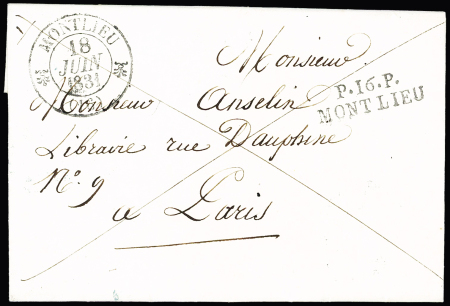 MONTLIEU
18
JUIN
1831
Monsieur
P.16.P.
MONTLIEU
Monsieur Anselin
Libraire rue Dauphine
N.º 9
a Paris